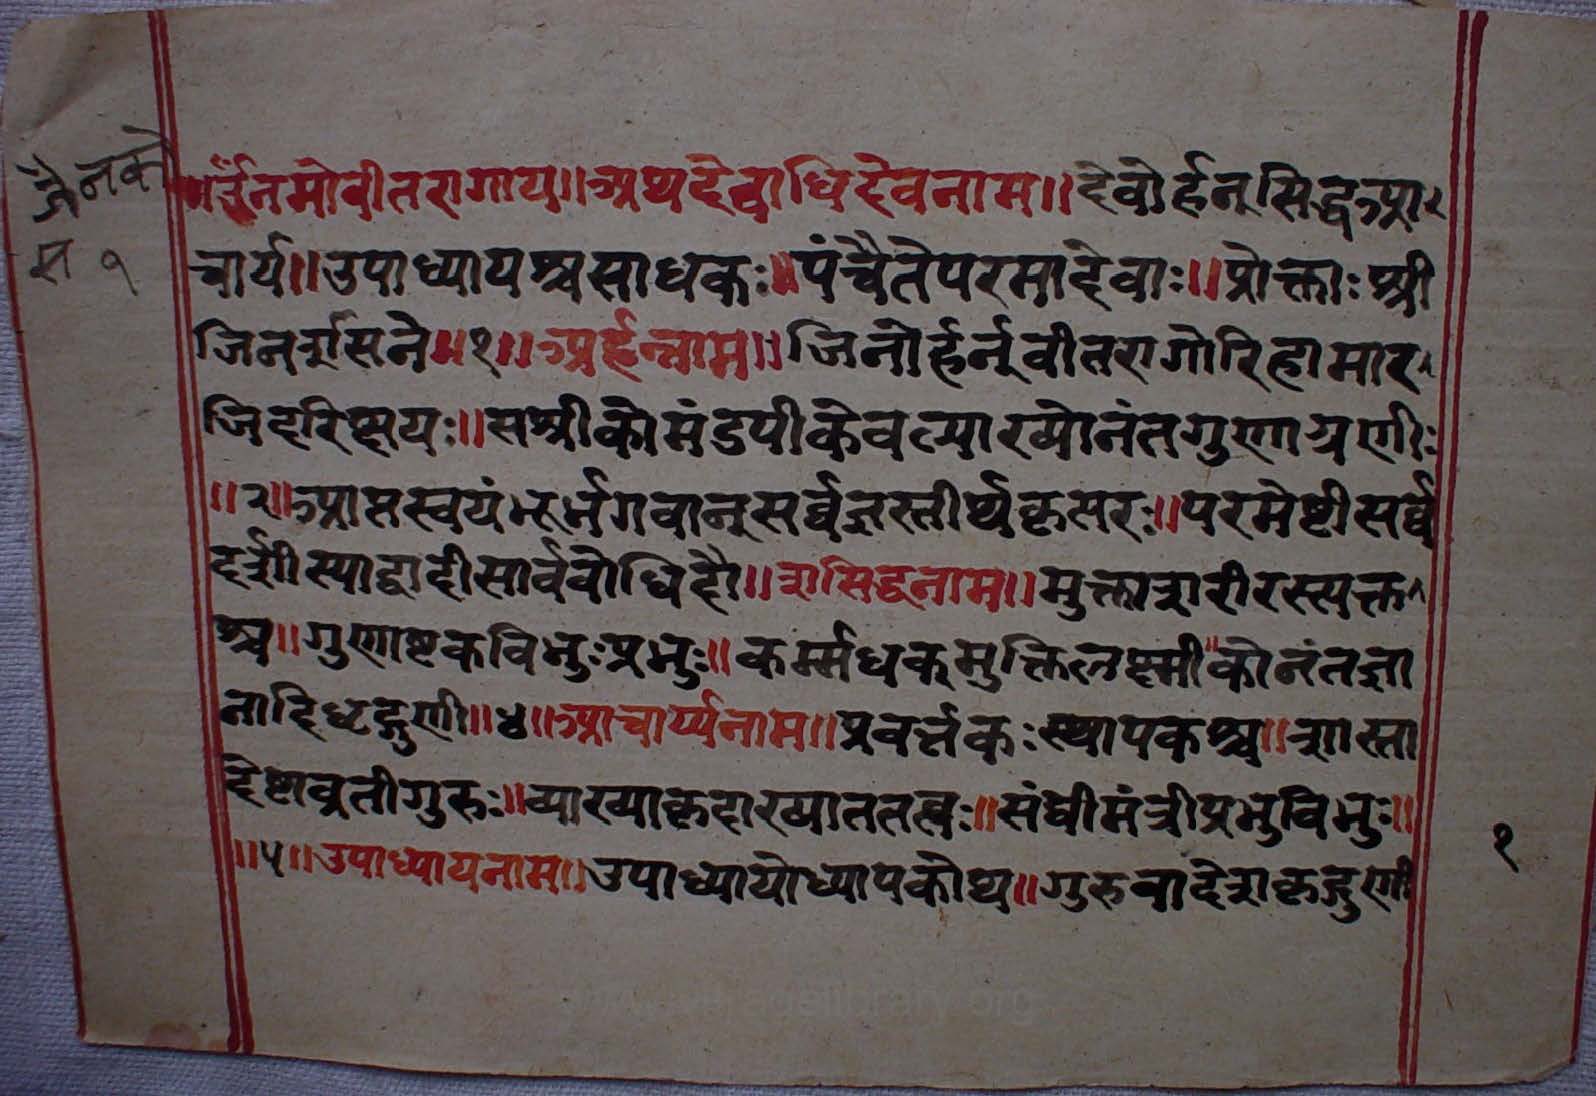 जैनको
स १
ॐनमोवीतरागाय॥अथदेवाधिदेवनाम॥देवोर्हन्सिद्धआ
चार्य॥उपाध्यायश्चसाधकः॥पंचैतेपरमादेवाः॥प्रोक्ताःश्री
जिनशासने॥१॥अर्हन्नाम॥जिनोर्हन्वीतरागोरिहामार
जिद्दरिप्सयः॥सश्रीकोमंडपीकेवल्याख्योनंतगुणाग्रणीः
॥२॥आप्तस्वयंभूर्भगवान्सर्वज्ञस्तीर्थकृत्परः॥परमेष्टीसर्व
दर्शीस्याद्वादीसार्वबोधिदौ॥३॥सिद्धनाम॥मुक्ताशरीरस्त्यक्त
श्च॥गुणाष्टकविभुःप्रभुः॥कर्म्मधक्मुक्तिलक्ष्मीकोनंतज्ञा
नादिधृद्गुणी॥४॥आचार्य्यनाम॥प्रवर्त्तकःस्थापकश्च॥शास्ता
देष्टाव्रतीगुरुः॥व्याख्याकृदाख्याततत्वः॥संघीमंत्रीप्रभुविभुः॥
॥५॥उपाध्यायनाम॥उपाध्यायोध्यापकोथ॥गुरुवादेशकृद्गुणी
१